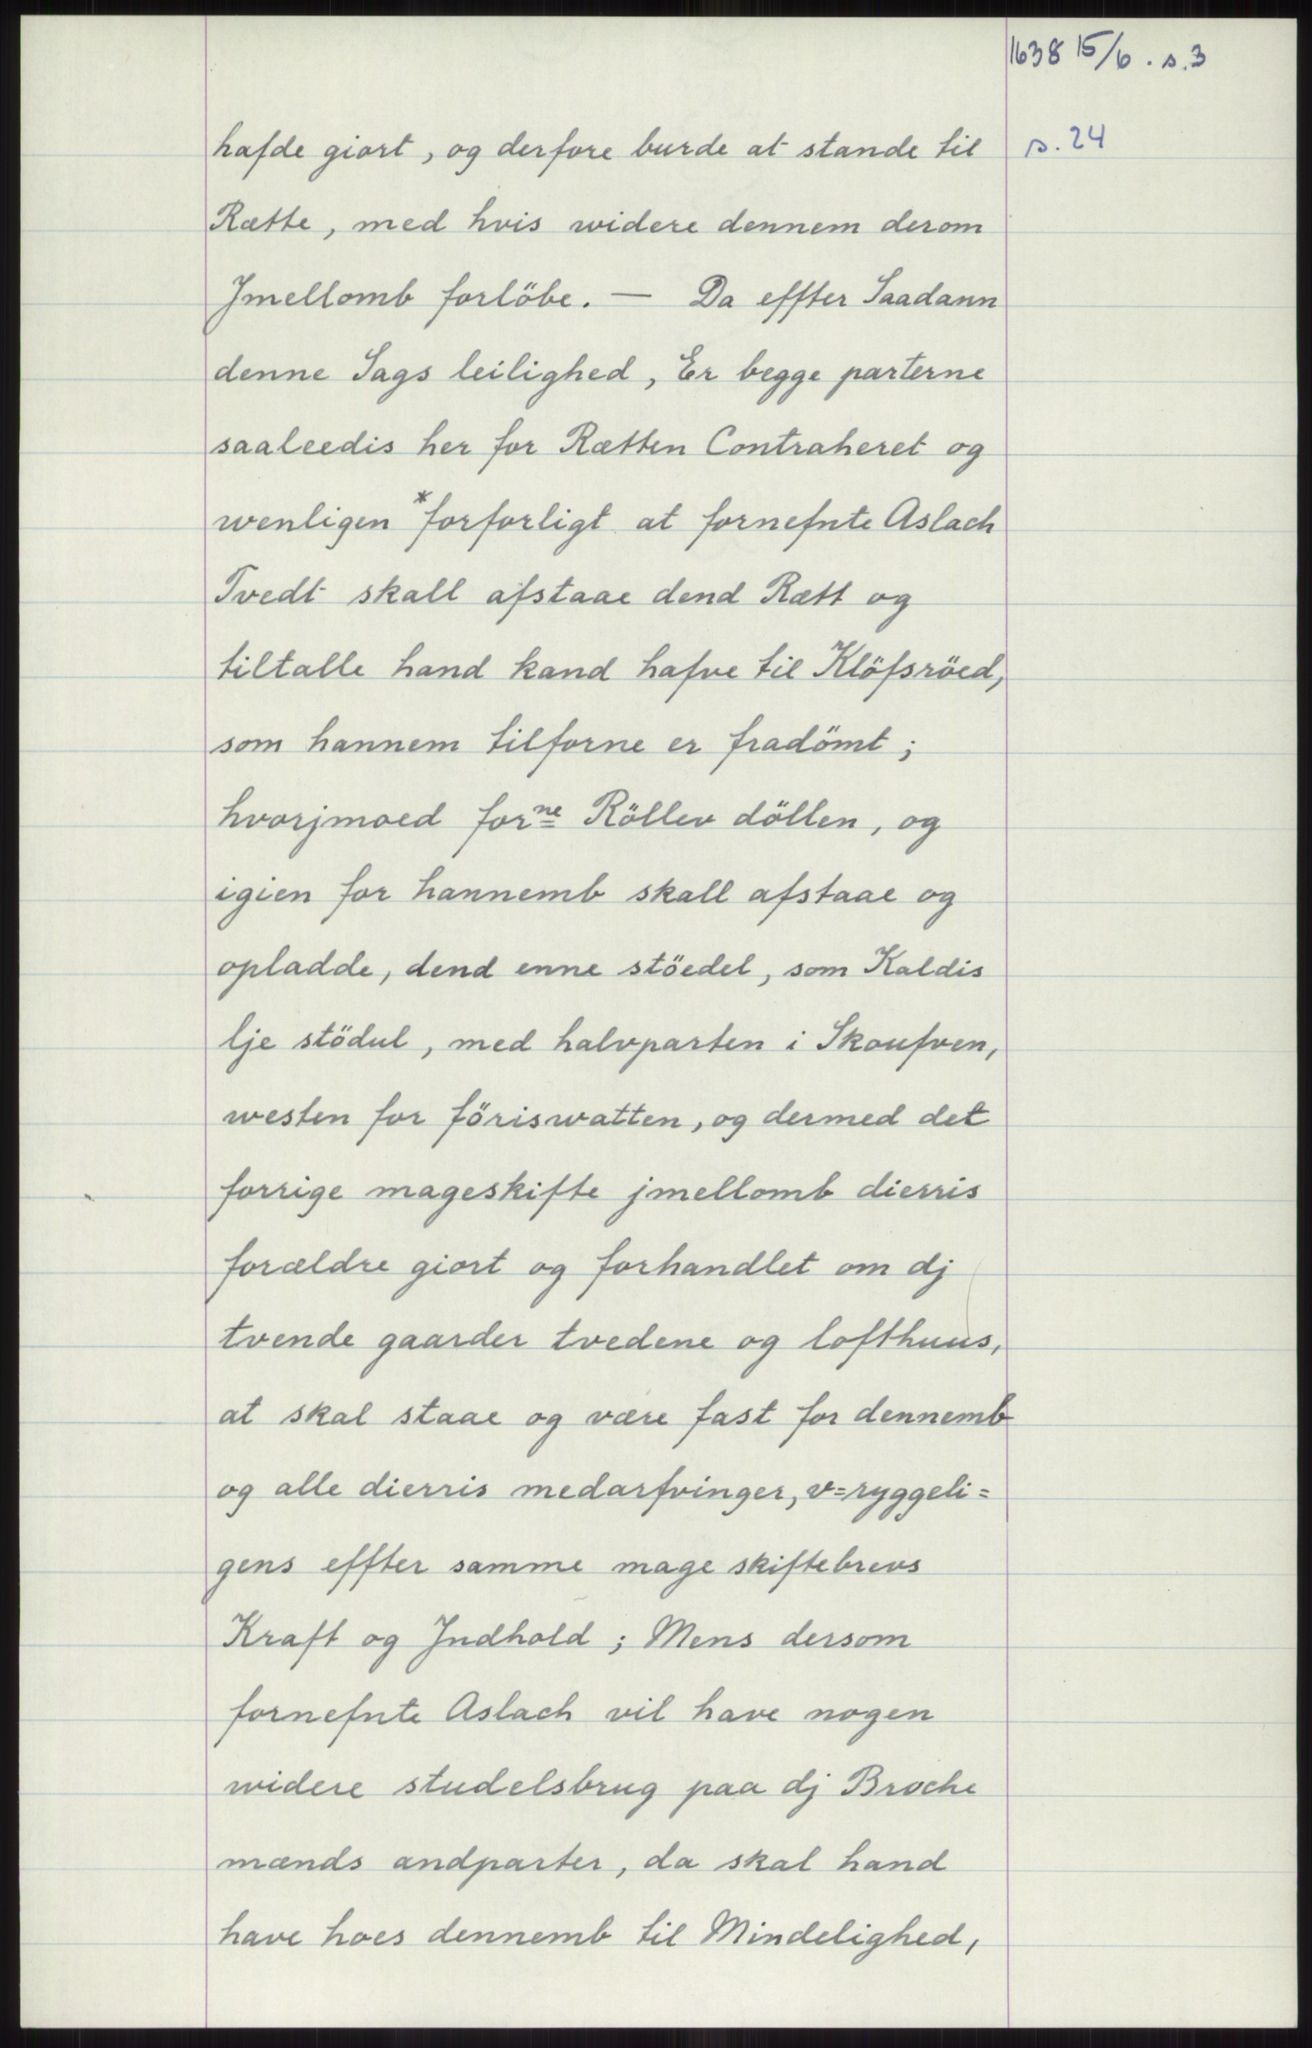 1638 15/6 . s.3
s. 24
hafde giort, og derfore burde at stande til
Rætte, med hvis widere dennem derom
Jmellomb forlöbe. — Da effter Saadann
denne Sags leilighed, Er begge parterne
saaleedis her for Rætten Contraheret og
wenligen *forforligt at fornefnte Aslach
Tvedt skall afstaae dend Rætt og
tiltalle hand kand hafve til Klöfsröed,
som hannem tilforne er fradömt;
hvorjmoed forne Röllev döllen, og
igien for hannemb skall afstaae og
opladde, dend enne stöedel, som Kaldis
lje stödul, med halvparten i Skoufven,
westen for föriswatten, og dermed det
forrige mageskifte jmellomb dierris
forældre giort og forhandlet om dj
tvende gaarder tvedene og lofthuus,
at skal staae og være fast for dennemb
og alle dierris medarfvinger, v=ryggeli=
gens effter samme mage skiftebrevs
Kraft og Jndhold; Mens dersom
fornefnte Aslach vil have nogen
widere studelsbrug paa dj Broche
mænds andparter, da skal hand
have hoes dennemb til Mindelighed,